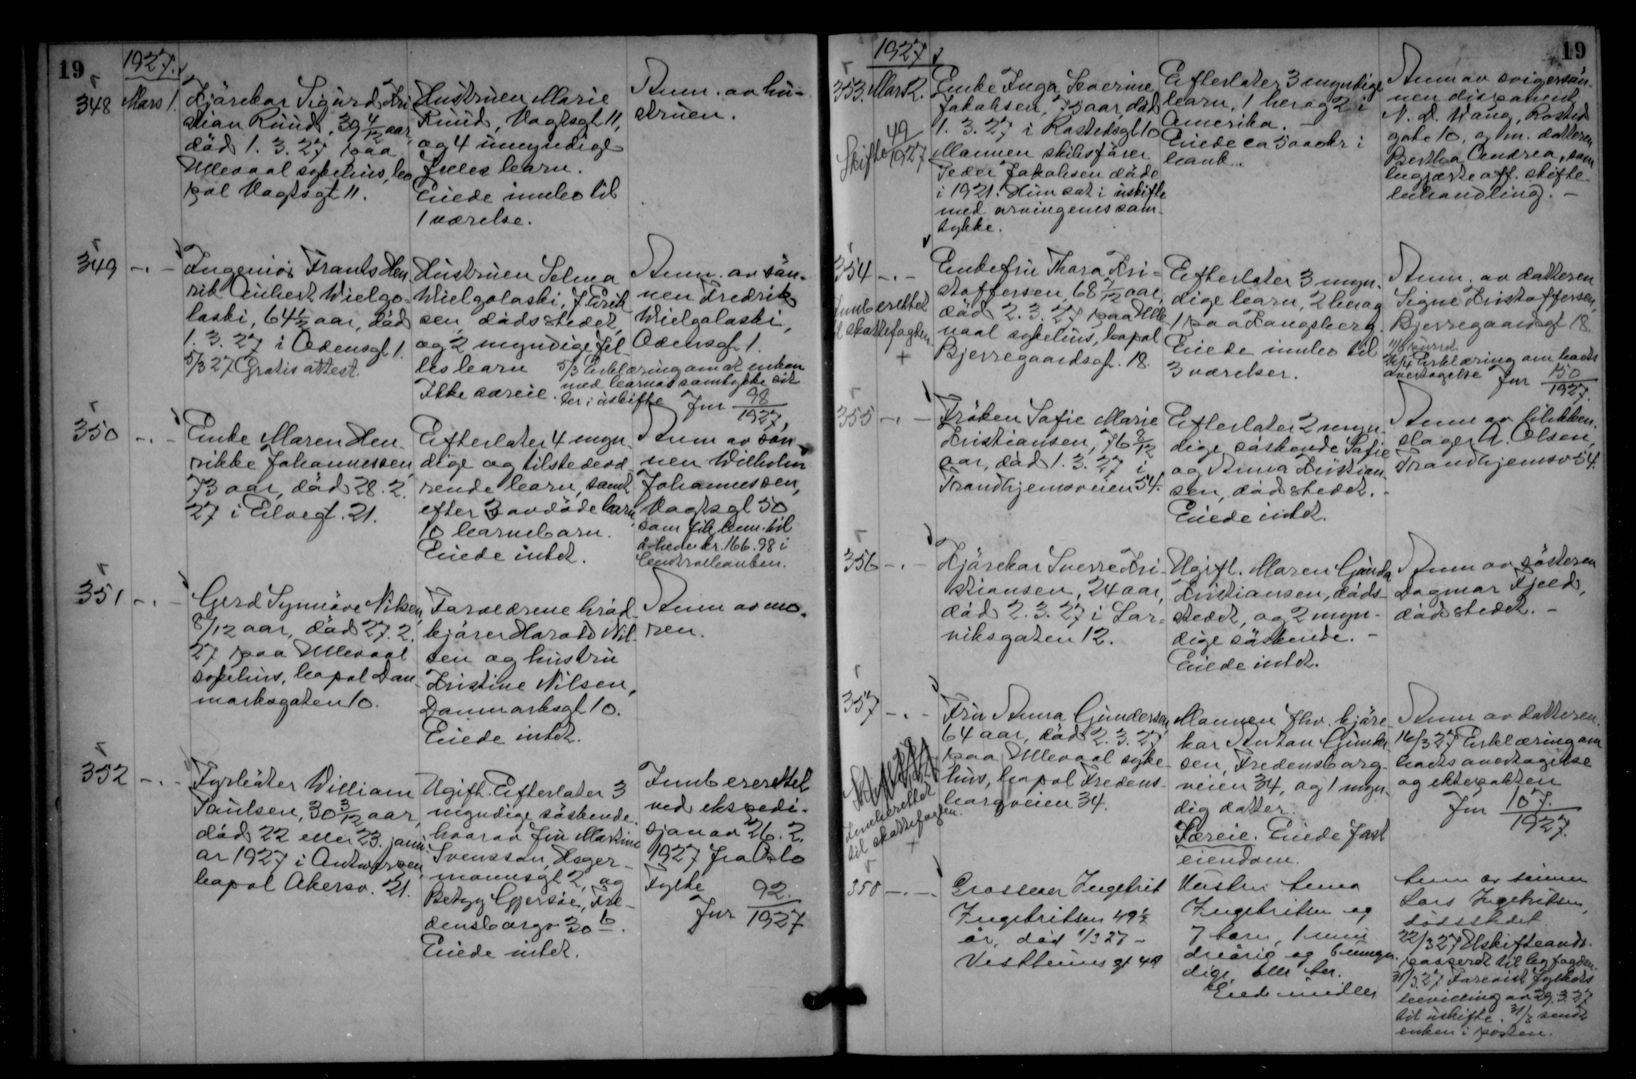 19
1927.
348 Mars 1.
Kjörekar Sigurd Kri-
stian Ruud, 39 4/12 aar,
död 1. 3. 27 paa
Ullevaal sykehus, bo-
pæl Vogtsgt 11.
Hustruen Marie
Ruud, Vogtsgt 11,
og 4 umyndige
fælles barn.
Eiede innbo til
1 værelse.
Anm. av hu-
struen.
349 -"-
Ingeniör Frants Hen
rik Aubert Wielgo-
laski, 64 1/2 aar, död
1. 3. 27 i Odensgt 1.
5/3 27 Gratis attest.
Hustruen Selma
Wielgolaski, f. Erik
sen, dödsstedet,
og 2 myndige fæl-
les barn
Ikke særeie.
5/3 Erklæring om at enken
med barnas samtykke sit
ter i uskifte Jnr 98/1927,
Anm. av sön-
nen Fredrik
Wielgolaski,
Odensgt 1.
350 -"-
Enke Maren Hen
rikke Johannessen,
73 aar, död 28. 2.
27 i Eilvegt. 21.
Efterlater 4 myn
dige og tilstedevæ
rende barn, samt
efter 3 avdöde barn
10 barnebarn.
Eiede intet.
Anm av sön
nen Wilhelm
Johannessen,
Vogtsgt 50
som fik bem. til
å heve kr. 166.98 i
Centralbanken.
351 -"-
Gerd Synnöve Nilsen,
8/12 aar, död 27. 2.
27 paa Ullevaal
sykehus, bopæl Dan
marksgaten 10.
Forældrene bröd
kjörer Harald Nil-
sen og hustru
Kristine Nilsen,
Danmarksgt 10.
Eiede intet.
Anm av mo-
ren.
352 -"-
Fyrböter William
Paulsen, 30 3/12 aar,
död 22 eller 23. janu
ar 1927 i Antwerpen,
bopæl Akersv. 21.
Ugift. Efterlater 3
myndige söskende.
hvorav fru Martine
Svensson, Heger-
mannsgt 2, og
Betzy Gjersöe, Fre-
densborgv 30 b.
Eiede intet.
Innberettet
ved ekspedi-
sjon av 26. 2.
1927 fra Oslo
Fylke
Jnr 92/1927
19
1927
353. Mars 2.
Skifte 49/1927
Enke Inga Severine
Jakobsen, 73 aar, död
1. 3. 27 i Rostedsgt 10
Mannen skibsförer
Peder Jakobsen döde
i 1921. Hun sat i uskifte
med arvingenes sam-
tykke.
Efterlater 3 myndige
barn, 1 her og 2 i
Amerika.
Eiede ca 5000 kr i
bank.
Anm av svigersön
nen disponent
N. A. Wang, Rosted
gate 10, og m. datteren
Berthe Andrea, som
begjærte off. skifte-
behandling. -
354 -"-
Innberettet
til skattefogden.
+
Enkefru Thora Kri-
stoffersen, 68 7/12 aar,
död 2. 3. 27 paa Ulle
vaal sykehus, bopæl
Bjerregaardsgt. 18.
Efterlater 3 myn-
dige barn, 2 her og
1 paa Kongsberg.
Eiede innbo til
3 værelser.
Anm. av datteren
Signe Kristoffersen,
Bjerregaardsgt 18.
Erklæring om boets
overtagelse Jnr 150/1927.
355 -"-
Fröken Sofie Marie
Kristiansen, 76 8/12
aar, död 1. 3. 27 i
Trondhjemsveien 54.
Efterlater 2 myn-
dige söskende Sofie
og Anna Kristian
sen, dödsstedet. -
Eiede intet.
Anm av blikken-
slager A. Olsen,
Trondhjemsv 54.
356 -"-
Kjörekar Sverre Kri-
stiansen, 24 aar,
död 2. 3. 27 i Lar-
viksgaten 12.
Ugift. Moren Gunda
Kristiansen, döds-
stedet, og 2 myn-
dige söskende. -
Eiede intet.
Anm av sösteren
Dagmar Fjeld,
dödsstedet. -
357 -"-
Innberettet
til skattefogden.
+
Fru Anna Gundersen,
64 aar, död 2. 3. 27
paa Ullevaal syke-
hus, bopæl Fredens-
borgveien 34.
Mannen fhv. kjöre
kar Anton Gunder
sen, Fredensborg
veien 34, og 1 myn-
dig datter.
Særeie. Eiede fast
eiendom.
Anm av datteren.
16/3 27 Erklæring om
boets overtagelse
og ektepakten
Jnr 107/1927.
358 -"-
Grosserer Ingebrit
Ingebritsen 49 1/2
år, död 1/3 27 -
Vestheimsgt 4 A
Hustru Anna
Ingebritsen og
7 barn, 1 min
dreårig og 6 umyn
dige, alle her.
Eiede midler
Anm av sönnen
Lars Ingebritsen,
dödsstedet
22/3 27 Uskifteands.
passeret til byfogden.
31/3. 27 Forevist Fylkets
bevilling av 29. 3. 27
til uskifte. 31/3 sendt
enken i posten.